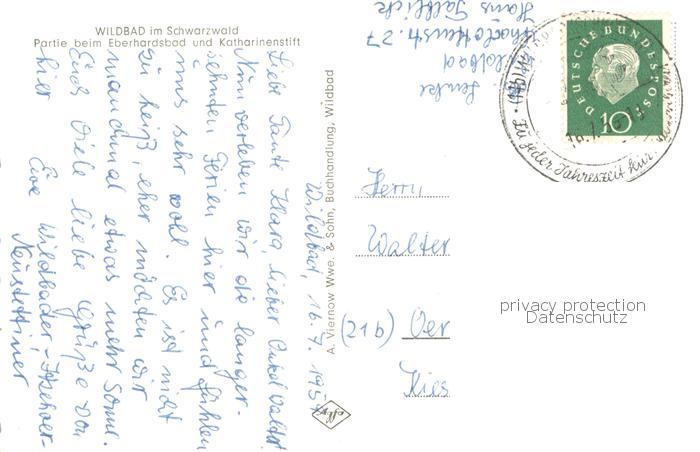 WILDBAD im Schwarzwald
Partie beim Eberhardsbad und Katharinenstift
Wildbad, 16. 7. 195
Liebe Tante Klara, lieber Onkel Walter!
Nun verleben wir die langer-
sehnten Ferien hier und fühlen
uns sehr wohl. Es ist nicht
zu heiß, eher möchten wir
manchmal etwas mehr Sonne.
Euch viele liebe Grüße von
hier Eure Wildbader-
Neustettiner
A. Viernow Wwe. & Sohn, Buchhandlung, Wildbad
Hans
str. 27
Wildbad
DEUTSCHE BUNDESPOST
10
Zu jeder Jahreszeit Kur
Herrn
Walter
(21b) Oer
Kies
privacy protection
Datenschutz